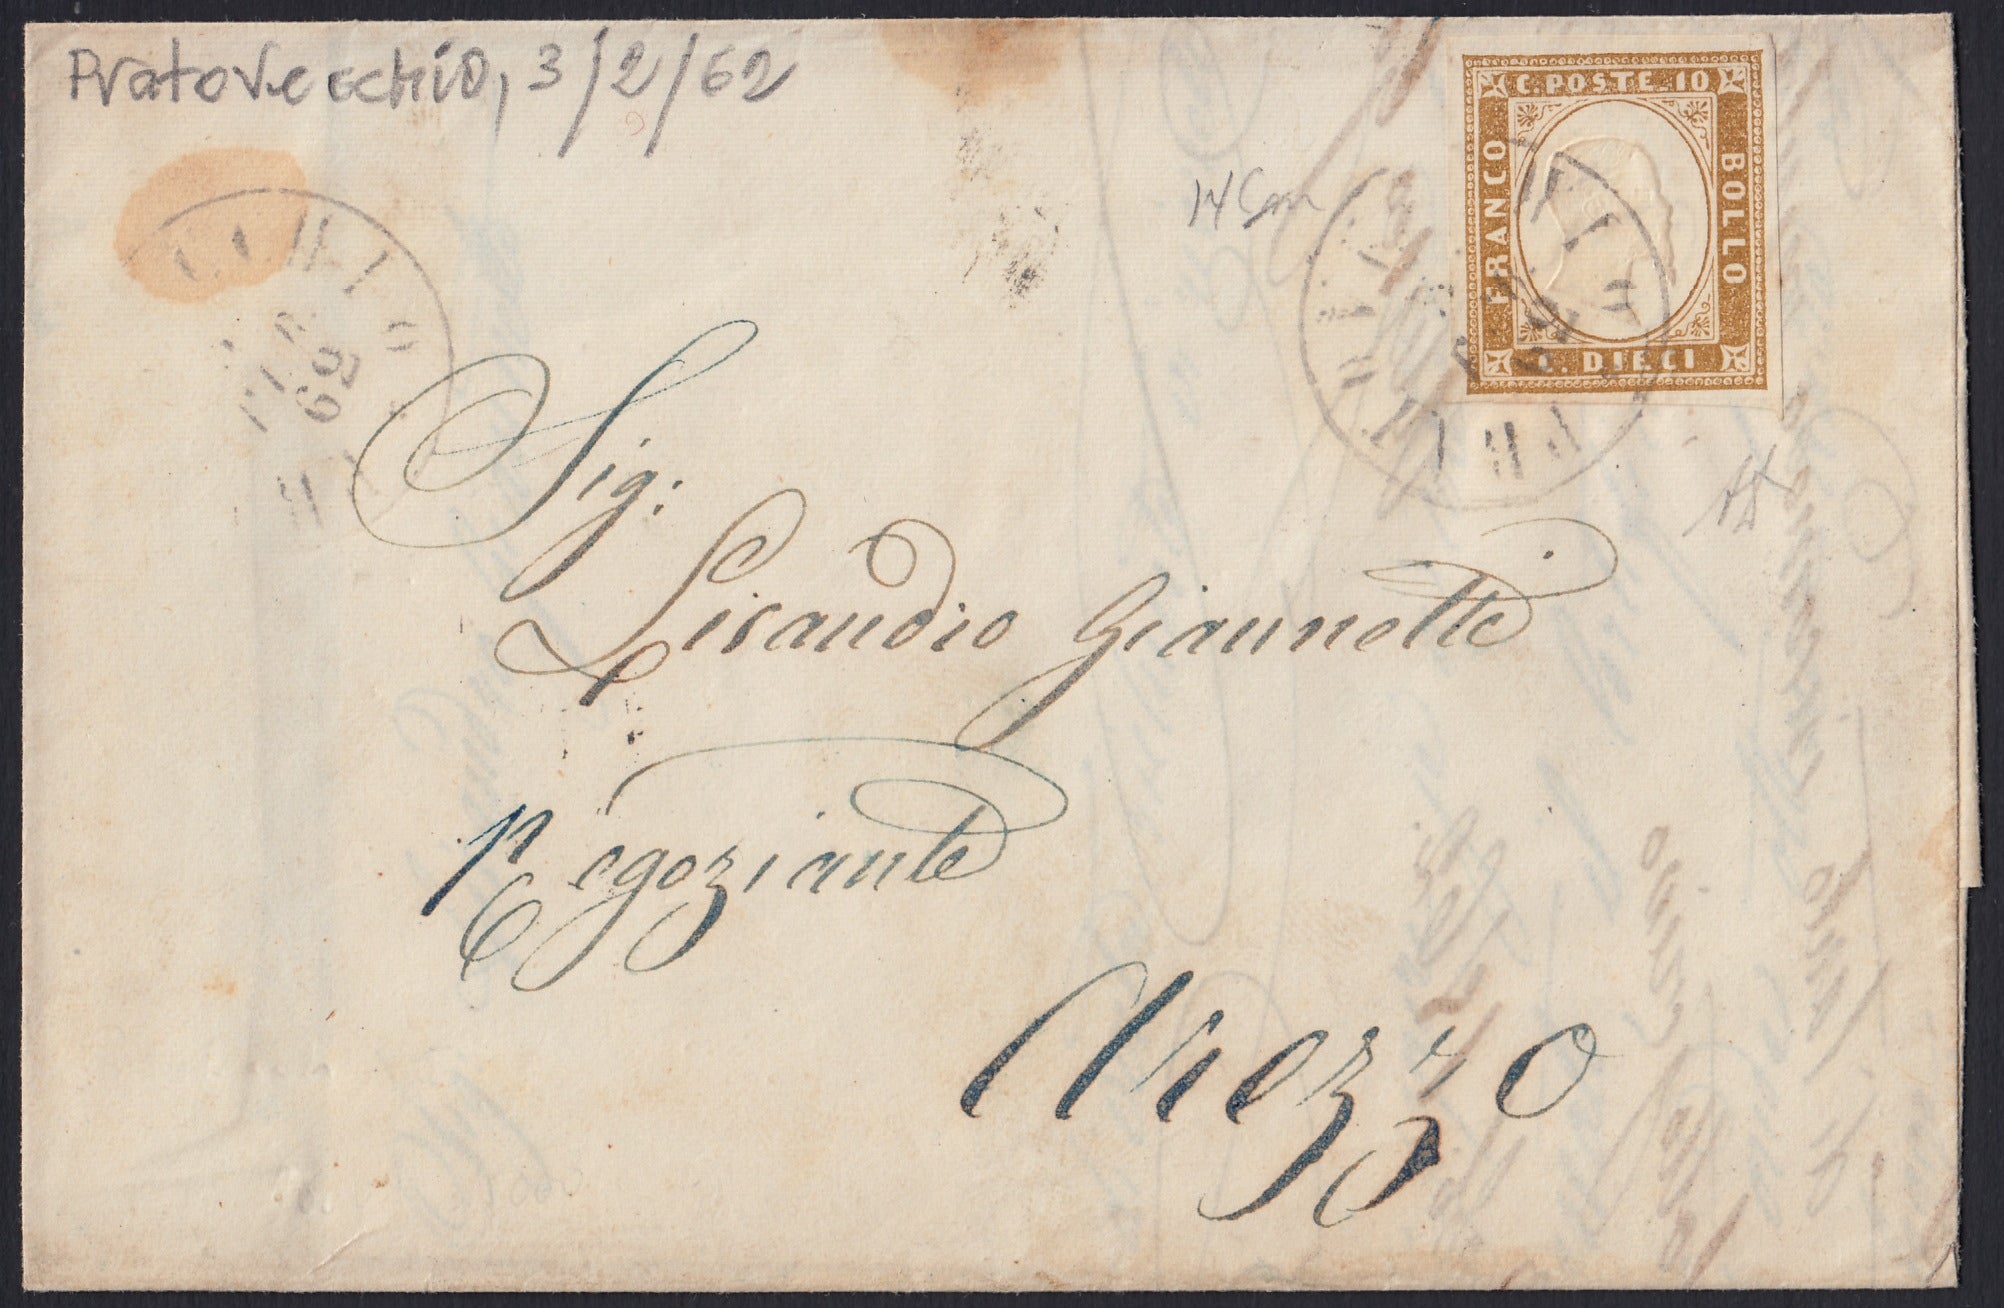 Pratovecchio, 3/2/62
C. POSTE. 10
FRANCO
BOLLO
C. DIECI
62
Sig:
Lisandio Giannotte
Negoziante
Arezzo